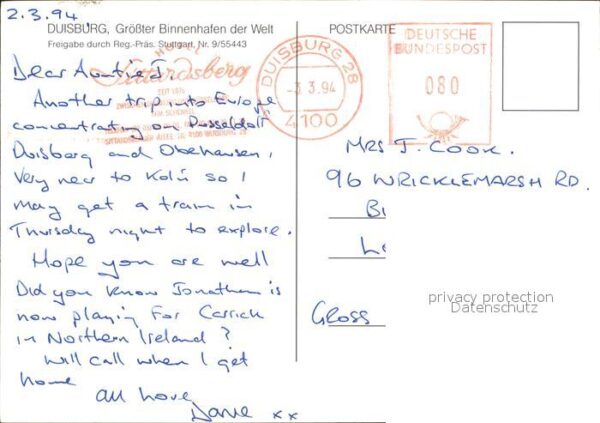 2.3.94,
DUISBURG, Größter Binnenhafen der Welt
Freigabe durch Reg.-Präs. Stuttgart, Nr. 9/55443
Dear Auntie J.
Another trip into Europe
concentrating on Dusseldolf
Duisberg and Obehausen,
Very near to Koln so I
may get a train in
Thursday night to explore.
Hope you are well
Did you know Jonathan is
now playing for Carrick
in Northern Ireland?
Will call when I get
home
All Love
Dave xx
HOTEL
Sittardsberg
SEIT 1875
DUISBURG 28
-3.3.94
4100
POSTKARTE
DEUTSCHE
BUNDESPOST
080
MRS J. COOK.
96 WRICKLEMARSH RD.
Gloss
privacy protection
Datenschutz